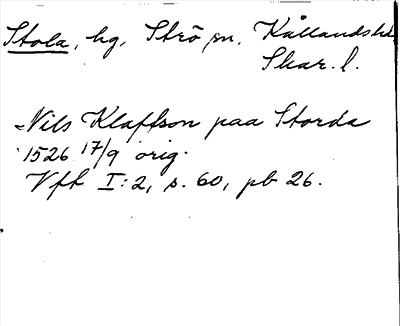 Stola, hg, Strö sn, Kållandshd
Skar. l.
Nils Klaffson paa Storda
1526 17/9 orig.
Vfk I:2, s. 60, pb 26.